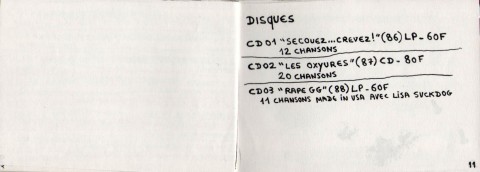 DISQUES
CD01 "SECOUEZ...CREVEZ!" (86) LP - 60F
12 CHANSONS
CD02 "LES OXYURES" (87) CD - 80F
20 CHANSONS
CD03 "RAPE GG" (88) LP - 60F
11 CHANSONS MADE IN USA AVEC LISA SUCKDOG
11